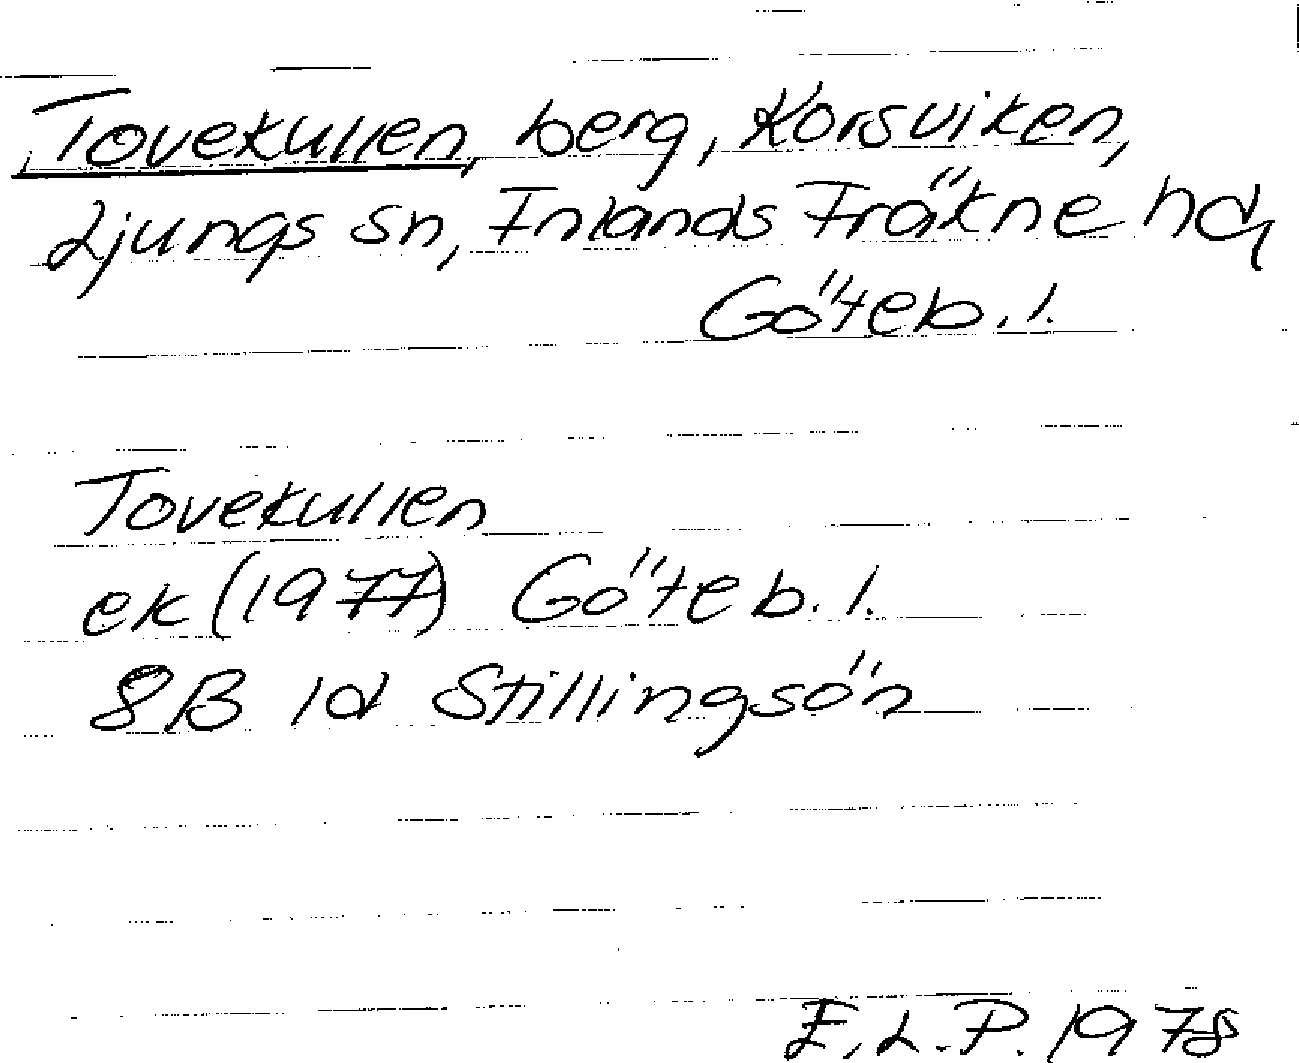 Tovekullen, berg, Korsviken,
Ljungs sn, Inlands Fräkne hd,
Göteb. l.
Tovekullen
ek (1977) Göteb. l.
8B 1d Stillingsön
E. L. P. 1978